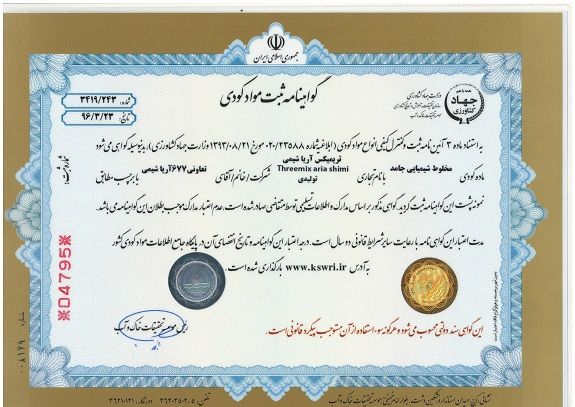 جمهوری اسلامی ایران
گواهینامه ثبت مواد کودی
وزارت جهاد کشاورزی
جهاد
کشاورزی
شماره: ۳۴۱۹/۲۴۳
تاریخ: ۹۶/۳/۲۳
به استناد ماده ۳ آئین نامه ثبت و کنترل کیفی انواع مواد کودی (ابلاغیه شماره ۰۲۰/۲۳۵۸۸ مورخ ۱۳۹۳/۰۸/۲۱ وزارت جهاد کشاورزی)، بدینوسیله گواهی می شود
ماده کودی مخلوط شیمیایی جامد با نام تجاری تریمیکس آریا شیمی Threemix aria shimi تولیدی شرکت/خانم/آقای تعاونی ۶۷۷ آریا شیمی با برچسب مطابق
نمونه پشت این گواهینامه ثبت گردید. گواهی مذکور بر اساس مدارک و اطلاعات تسلیمی توسط متقاضی صادر شده است، عدم اعتبار مدارک موجب بطلان این گواهینامه می باشد.
مدت اعتبار این گواهی نامه با رعایت سایر شرایط قانونی دو سال است. درجه اعتبار این گواهینامه و تاریخ انقضای آن در پایگاه جامع اطلاعات مواد کودی کشور
به آدرس www.kswri.ir بارگذاری شده است.
رئیس موسسه تحقیقات خاک و آب
این گواهی سند دولتی محسوب می شود و هرگونه سوء استفاده از آن مستوجب پیگرد قانونی است.
※04795※
شماره ۰۰۸۱۷۹
نشانی: کرج، میدان استاندارد، مشکین دشت، بلوار امام خمینی، موسسه تحقیقات خاک و آب
تلفن: ۵-۳۶۲۰۳۵۰۲
دورنگار: ۳۶۲۱۰۱۲۱